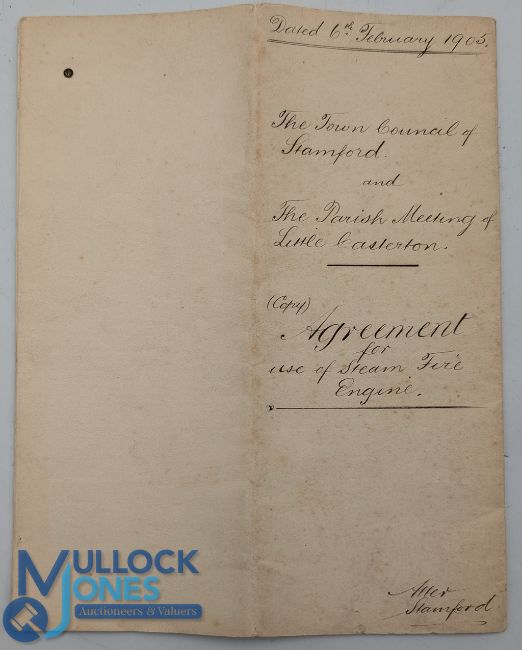 Dated 6th February 1905.
The Town Council of
Stamford.
and
The Parish Meeting of
Little Casterton.
(Copy)
Agreement
for
use of Steam Fire
Engine.
Atter
Stamford
MULLOCK
JONES
Auctioneers & Valuers